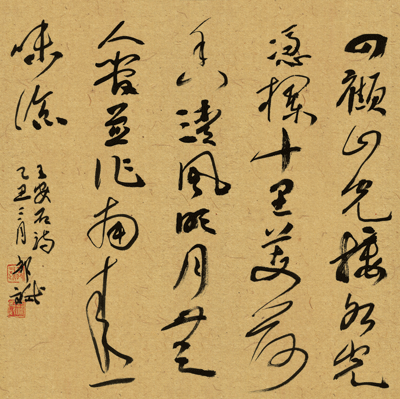 四顧山光接水光
憑欄十里芰荷
香清風明月無
人管並作南來一
味涼
王安石詩
乙丑三月